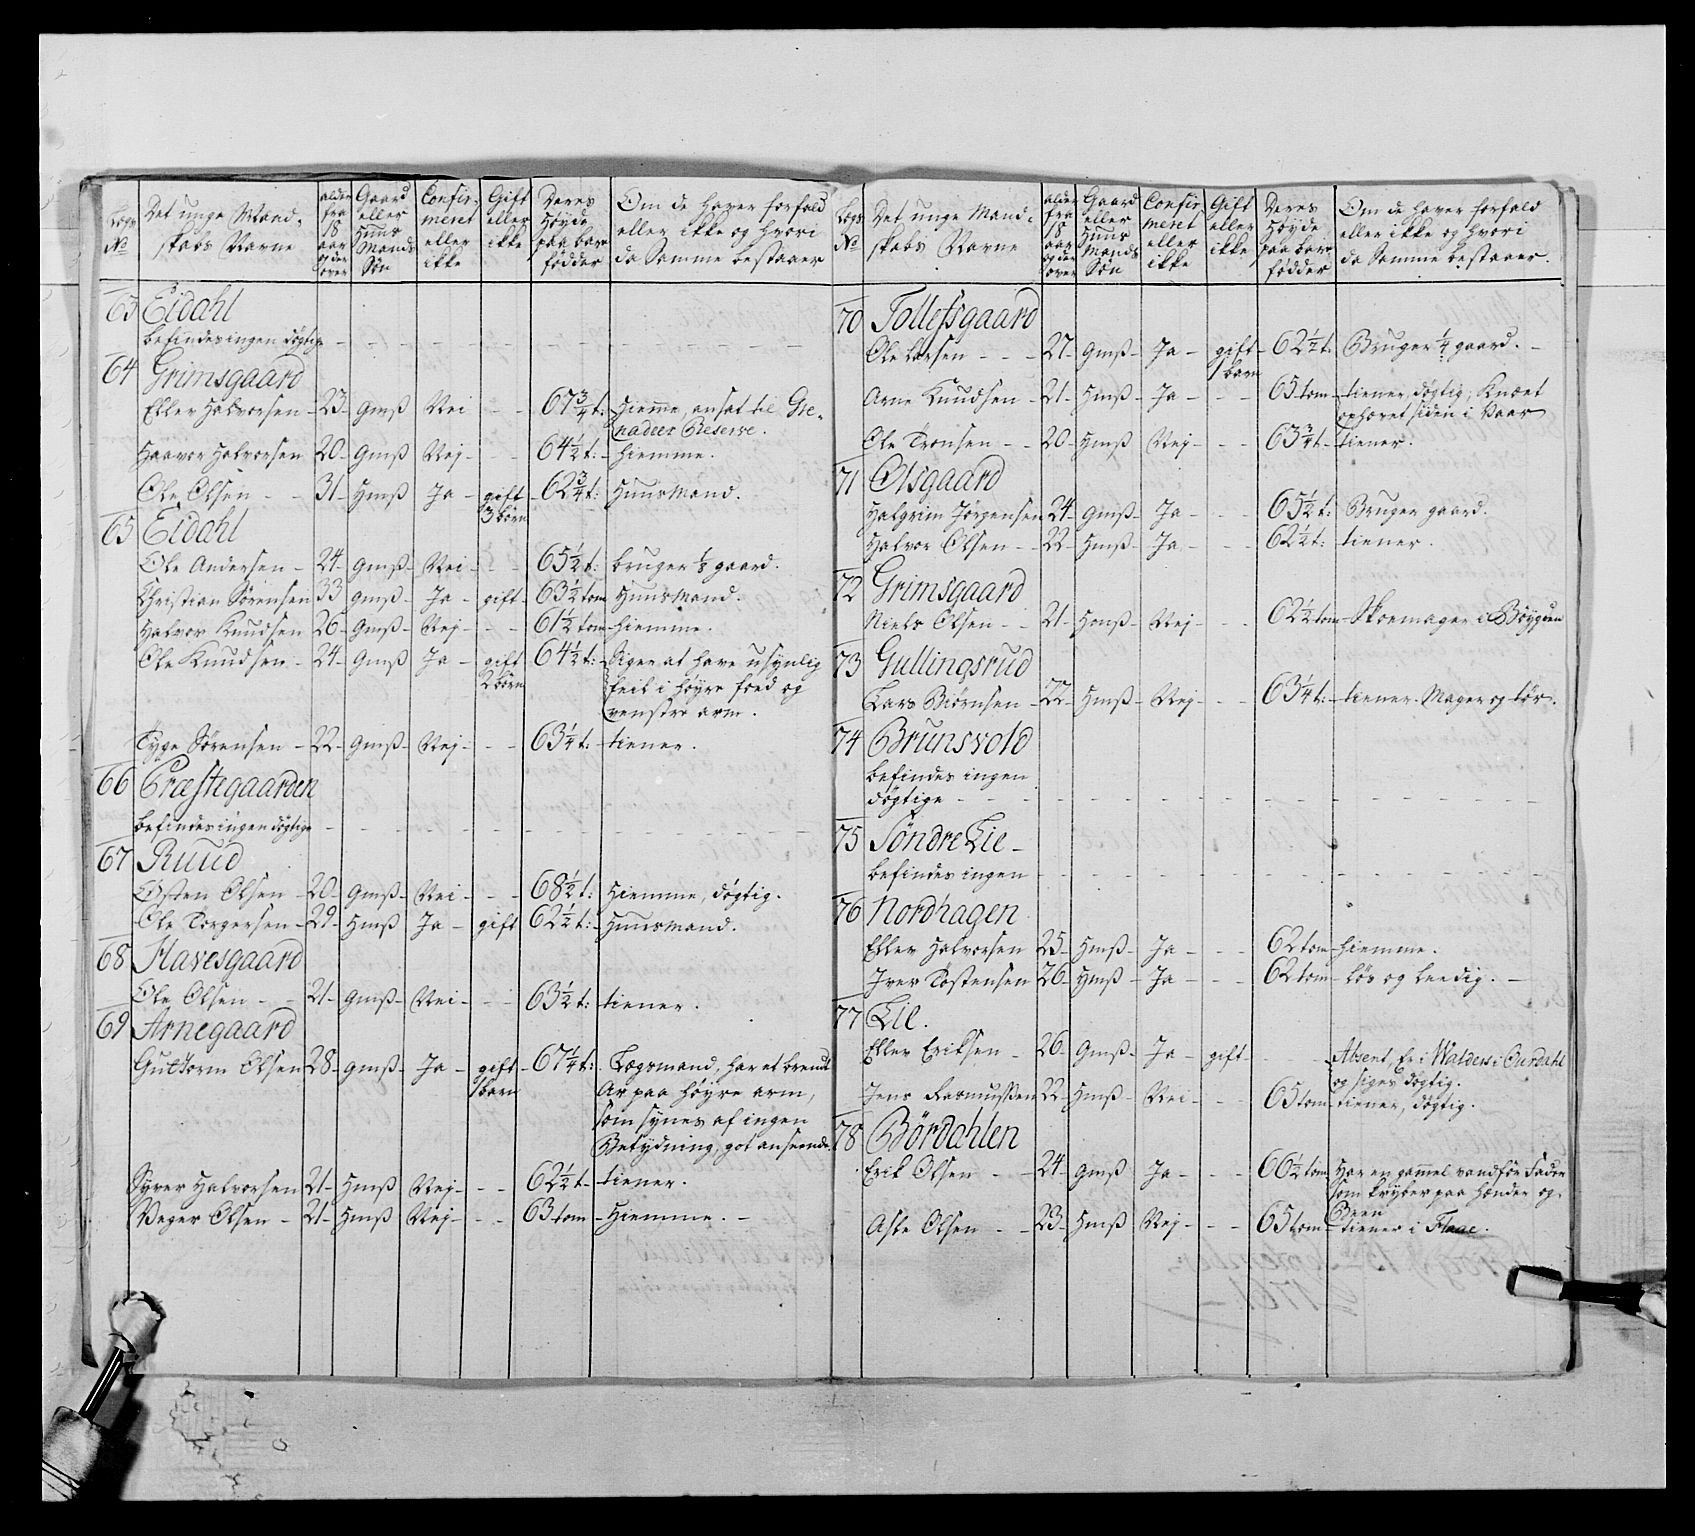 Legs No | Det unge Mand- skabs Navne | alder fra 18 aar og der over | Gaard eller Huus Mands Søn | Confir- meret eller ikke | Gift eller ikke | Deres Høyde paa bare fødder | Om de haver forfald eller ikke og hvori da Samme bestaaer
63 Eidahl
befindes ingen døgtige
64 Grimsgaard
Eller Halvorsen - 23 - Gmß Nei - - 67 3/4 t: Hiemme, ansat til Gre-
nadeer Reserve.
Haavor Halvorsen 20 - Gmß Nej - - 64 1/2 t: - hiemme.
Ole Olsen - - 31 - Hmß Ja - gift - 62 3/4 t: Huusmand.
3 børn
65 Eidahl
Ole Andersen - 24 - Gmß - Nei - - 65 1/2 t: bruger 1/3 gaard.
Christian Sørensen 33 gmß - Ja - gift - 63 1/2 tom Huusmand.
Halvor Knudsen 26 - Gmß - Nej - - - 61 1/2 tom - hiemme.
Ole Knudsen - 24 - Gmß Ja - gift 64 1/2 t: - Siger at have usynlig
2 børn feil i høyre foed og
venstre arm.
Tyge Sørensen - 22 - Gmß - Nej - - - 63 1/4 t: - tiener.
66 Præstegaarden
befindes ingen døgtige
67 Ruud
Østen Olsen - 20 - Gmß - Nei - - - 68 1/2 t: Hiemme, døgtig.
Ole Torgersen - 29 - Hmß Ja - gift 62 1/2 t: - Huusmand.
68 Havesgaard
Ole Olsen - - 21 - Gmß - Nei - - - 63 1/2 t: tiener.
69 Arnegaard
Guttorm Olsen 28 - gmß - Ja - gift - 67 1/4 t: - Lægsmand, har et brendt
1 barn Ar paa høyre arm,
som synes af ingen
Betydning, got anseende.
Syver Halvorsen 21 - Hmß Nej - - - 62 1/2 t - tiener.
Veger Olsen - 21 - Hmß Nej - - - 63 tom - Hiemme. -
Legs No | Det unge Mand- skabs Navne | alder fra 18 aar og der over | Gaard eller Huus Mands Søn | Confir meret eller ikke | Gift eller ikke | Deres Høyde paa bare fødder | Om de haver forfald eller ikke og hvori da Samme bestaaer.
70 Tollefsgaard
Ole Larsen - - - 27 - Gmß - Ja - gift - 62 1/2 t. Bruger 1/4 gaard. -
1 barn
Arne Knudsen - 21 - Hmß - Ja - - - 65 tom - tiener, døgtig, Knæet
ophovet siden i Vaar
Ole Tronsen - - 20 - Hmß - Nej - - - 63 3/4 t - tiener.
71 Olsgaard
Halgrim Jørgensen 24 - Gmß - Ja - - - 65 1/2 t: Bruger gaard.
Halvor Olsen - - 22 - Hmß - Ja - - - 62 1/2 t: tiener.
72 Grimsgaard
Niels Olsen - - 21 - Hmß - Nej - - - 62 1/2 tom - Skoemager i Bøygden
73 Gullingsrud
Lars Biørnsen - 22 - Hmß - Nej - - - 63 1/4 t: - tiener. Mager og tør.
74 Brunsvold
befindes ingen
døgtige - - -
75 Søndre Lie -
befindes ingen
76 Nordhagen
Eller Halvorsen 25 - Hmß - Ja - - - 62 tom - hiemme.
Iver Tostensen 26 - Hmß - Ja - - - 62 tom - løs og leedig. -
77 Lie.
Eller Eriksen - 26 - Gmß - Ja - gift - - - Absent, Er i Walders i Ourdahl
og siges døgtig.
Jens Rasmussen 22 - Hmß - Nei - - - 65 tom - tiener, døgtig.
78 Børdahlen
Erik Olsen - - 24 - gmß - Ja - - - 66 1/2 tom Har en gammel vanfør Fader
som kryber paa hænder og
Been
Asle Olsen - - 23 - Hmß - Nej - - - 65 tom - tiener i Flaae.